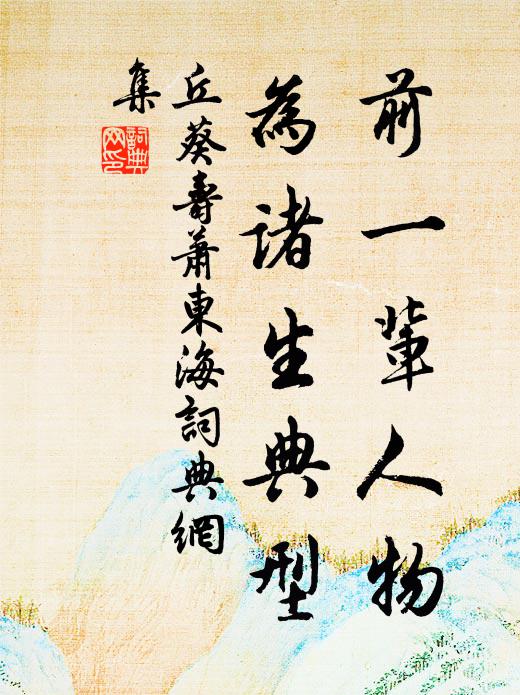 前一輩人物
為諸生典型
丘葵壽蕭東海詞典網
集
詞典
网印